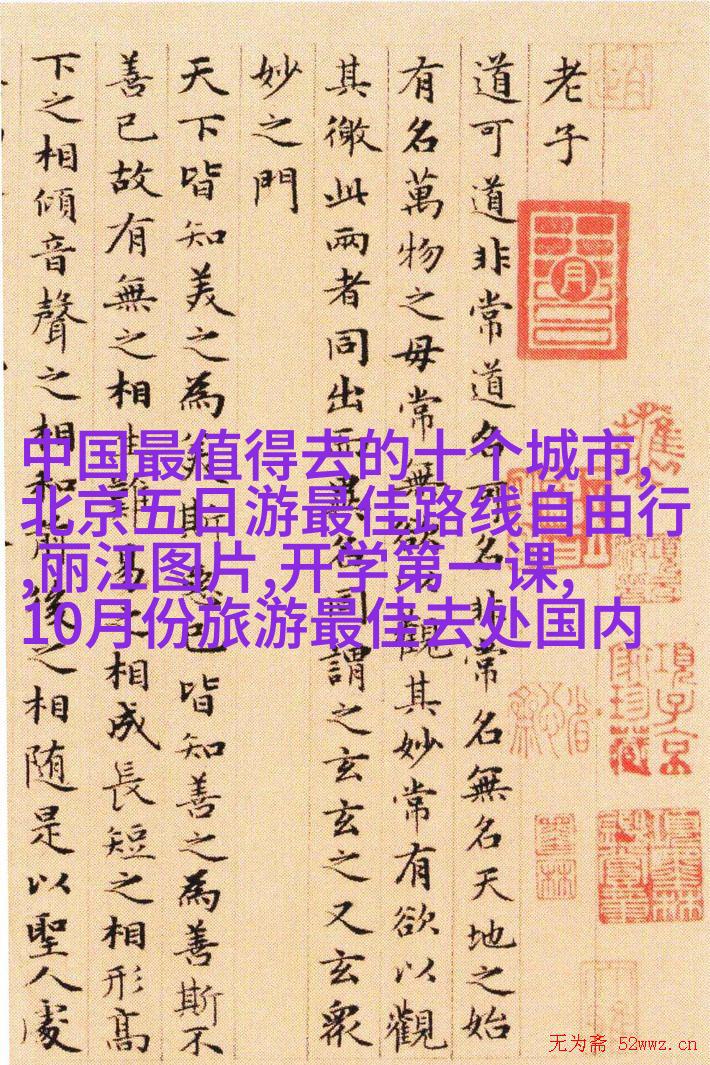 老子
道可道非常道名可名非常名無名天地之始
有名萬物之母常無欲以觀其妙常有欲以觀
其徼此兩者同出而異名同謂之玄玄之又玄衆
妙之門
天下皆知美之為美斯惡已皆知善之為善斯不
善已故有無之相生難易之相成長短之相形高
下之相傾音聲之相和前後之相随是以聖人處
中国最值得去的十个城市,
北京五日游最佳路线自由行
,丽江图片,开学第一课,
10月份旅游最佳去处国内
月
項子京
家珍藏
无为斋 52wwz.cn